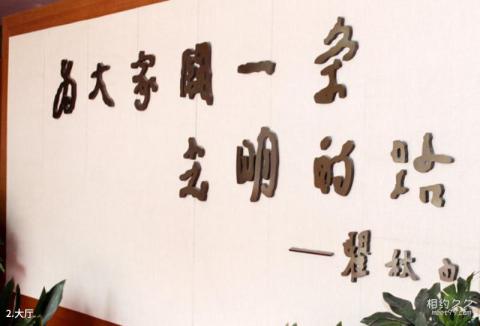 为大家開一条
光明的路
——瞿秋白
2.大厅
相约久久
meet99.com